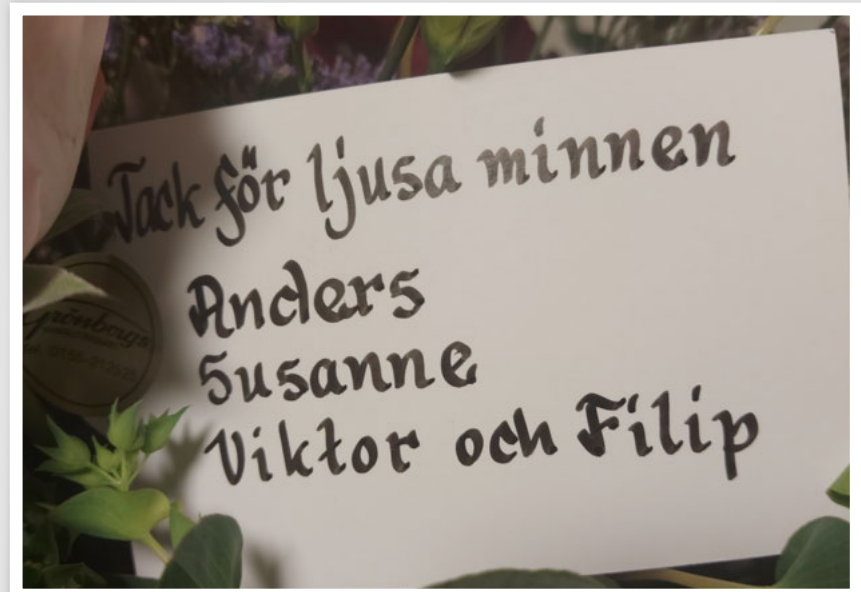 Tack för ljusa minnen
Anders
Susanne
Viktor och Filip
Grönbergs